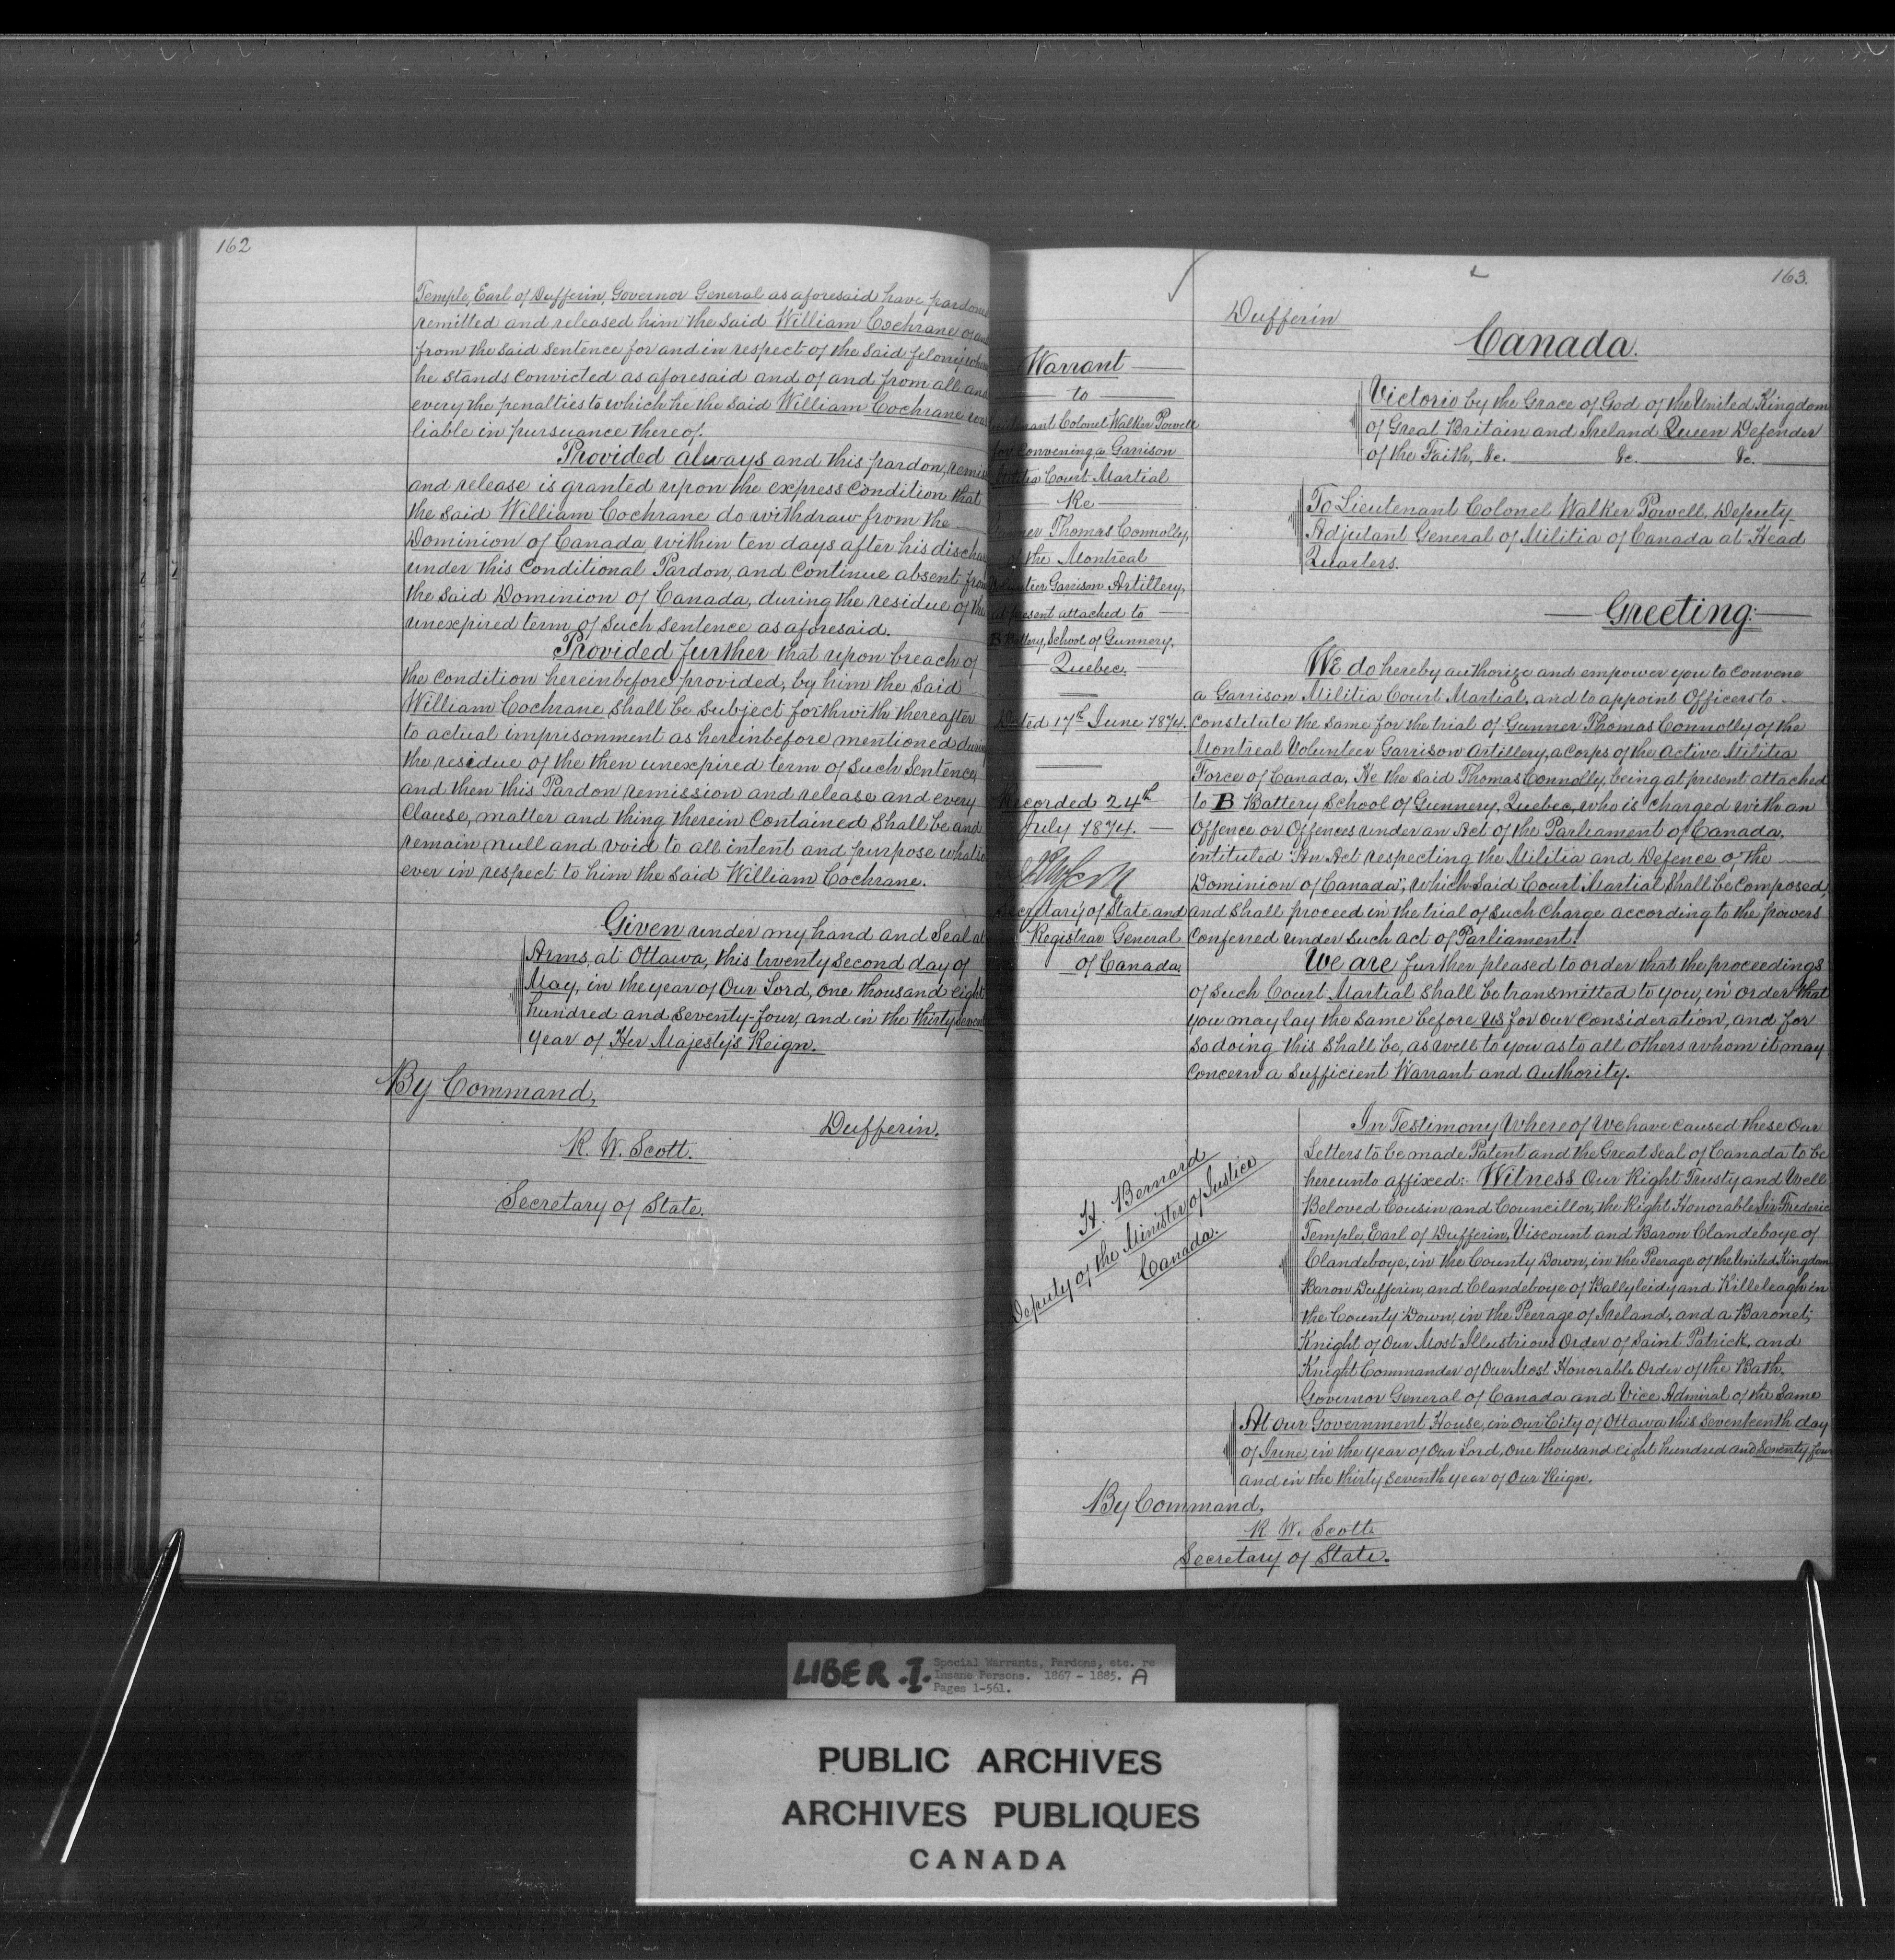 162
Temple, Earl of Dufferin, Governor General as aforesaid have
remitted and released him the said William Cochrane of
from the said sentence for and in respect of the said felony
he stands convicted as aforesaid and of and from all and
every the penalties to which he the said William Cochrane
liable in pursuance thereof.
Provided always and this pardon,
and release is granted upon the express condition that
the said William Cochrane do withdraw from the
Dominion of Canada within ten days after his
under this Conditional Pardon, and continue absent from
the said Dominion of Canada, during the residue of the
unexpired term of such sentence as aforesaid.
Provided further that upon breach of
the condition hereinbefore provided, by him the said
William Cochrane shall be subject forthwith thereafter
to actual imprisonment as hereinbefore mentioned during
the residue of the then unexpired term of such sentence,
and then this Pardon remission and release and every
Clause, matter and thing therein contained shall be and
remain null and void to all intent and purpose
ever in respect to him the said William Cochrane.
Given under my hand and Seal at
Arms, at Ottawa, this twenty second day of
May, in the year of Our Lord, one thousand eight
hundred and seventy-four, and in the thirty
year of Her Majesty's Reign.
By Command,
Dufferin.
R. W. Scott.
Secretary of State.
163.
Dufferin
Canada.
Warrant
to
Lieutenant Colonel Walker Powell
for convening a Garrison
Militia Court Martial
Re
Gunner Thomas Connolly,
of the Montreal
Volunteer Garrison Artillery,
at present attached to
B Battery, School of Gunnery,
Quebec.
Dated 17th June 1874.
Recorded 24th
July 1874.
Secretary of State and
Registrar General
of Canada
Victoria by the Grace of God of the United Kingdom
of Great Britain and Ireland Queen Defender
of the Faith, &c. &c. &c.
To Lieutenant Colonel Walker Powell, Deputy
Adjutant General of Militia of Canada at Head
Quarters.
Greeting:
We do hereby authorize and empower you to convene
a Garrison Militia Court Martial, and to appoint Officers to
constitute the same for the trial of Gunner Thomas Connolly of the
Montreal Volunteer Garrison Artillery, a Corps of the Active Militia
Force of Canada, He the said Thomas Connolly, being at present attached
to B Battery School of Gunnery, Quebec, who is charged with an
Offence or Offences under an Act of the Parliament of Canada,
intituled "An Act respecting the Militia and Defence of the
Dominion of Canada", which said Court Martial shall be composed,
and shall proceed in the trial of such charge according to the powers
conferred under such act of Parliament.
We are further pleased to order that the proceedings
of such Court Martial shall be transmitted to you, in order that
you may lay the same before us for our consideration, and for
so doing this shall be, as well to you as to all others whom it may
concern a sufficient Warrant and authority.
In Testimony Whereof We have caused these Our
Letters to be made Patent and the Great Seal of Canada to be
hereunto affixed:- Witness Our Right Trusty and Well
Beloved Cousin and Councillor, the Right Honorable Sir Frederic
Temple, Earl of Dufferin, Viscount and Baron Clandeboye of
Clandeboye, in the County Down, in the Peerage of the United Kingdom
Baron Dufferin and Clandeboye of Ballyleidy and Killeleagh in
the County Down, in the Peerage of Ireland, and a Baronet,
Knight of Our Most Illustrious Order of Saint Patrick, and
Knight Commander of Our Most Honorable Order of the Bath,
Governor General of Canada and Vice Admiral of the Same
At Our Government House, in Our City of Ottawa this seventeenth day
of June, in the year of Our Lord, one thousand eight hundred and seventy four
and in the thirty seventh year of Our Reign.
H. Bernard
Deputy of the Minister of Justice
Canada.
By Command,
R. W. Scott.
Secretary of State.
LIBER. I. A
Special Warrants, Pardons, etc. re
Insane Persons. 1867 - 1885.
Pages 1-561.
PUBLIC ARCHIVES
ARCHIVES PUBLIQUES
CANADA